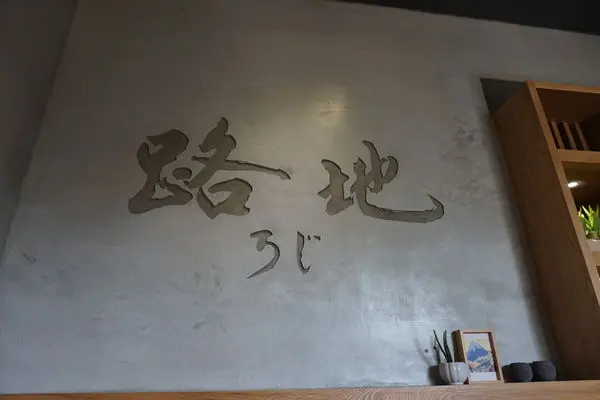 路地
ろじ